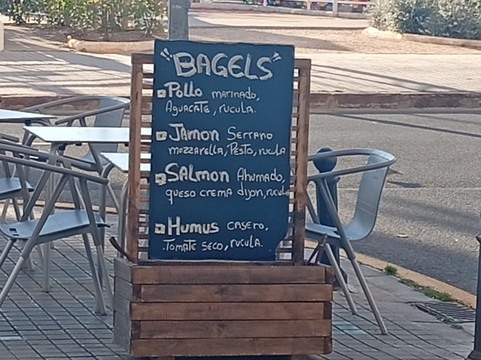 "BAGELS"
Pollo marinado,
Aguacate, rucula.
Jamon Serrano
mazzarella, Pesto, rucula
Salmon Ahumado,
queso crema dijon, rucula
Humus casero,
Tomate seco, rucula.